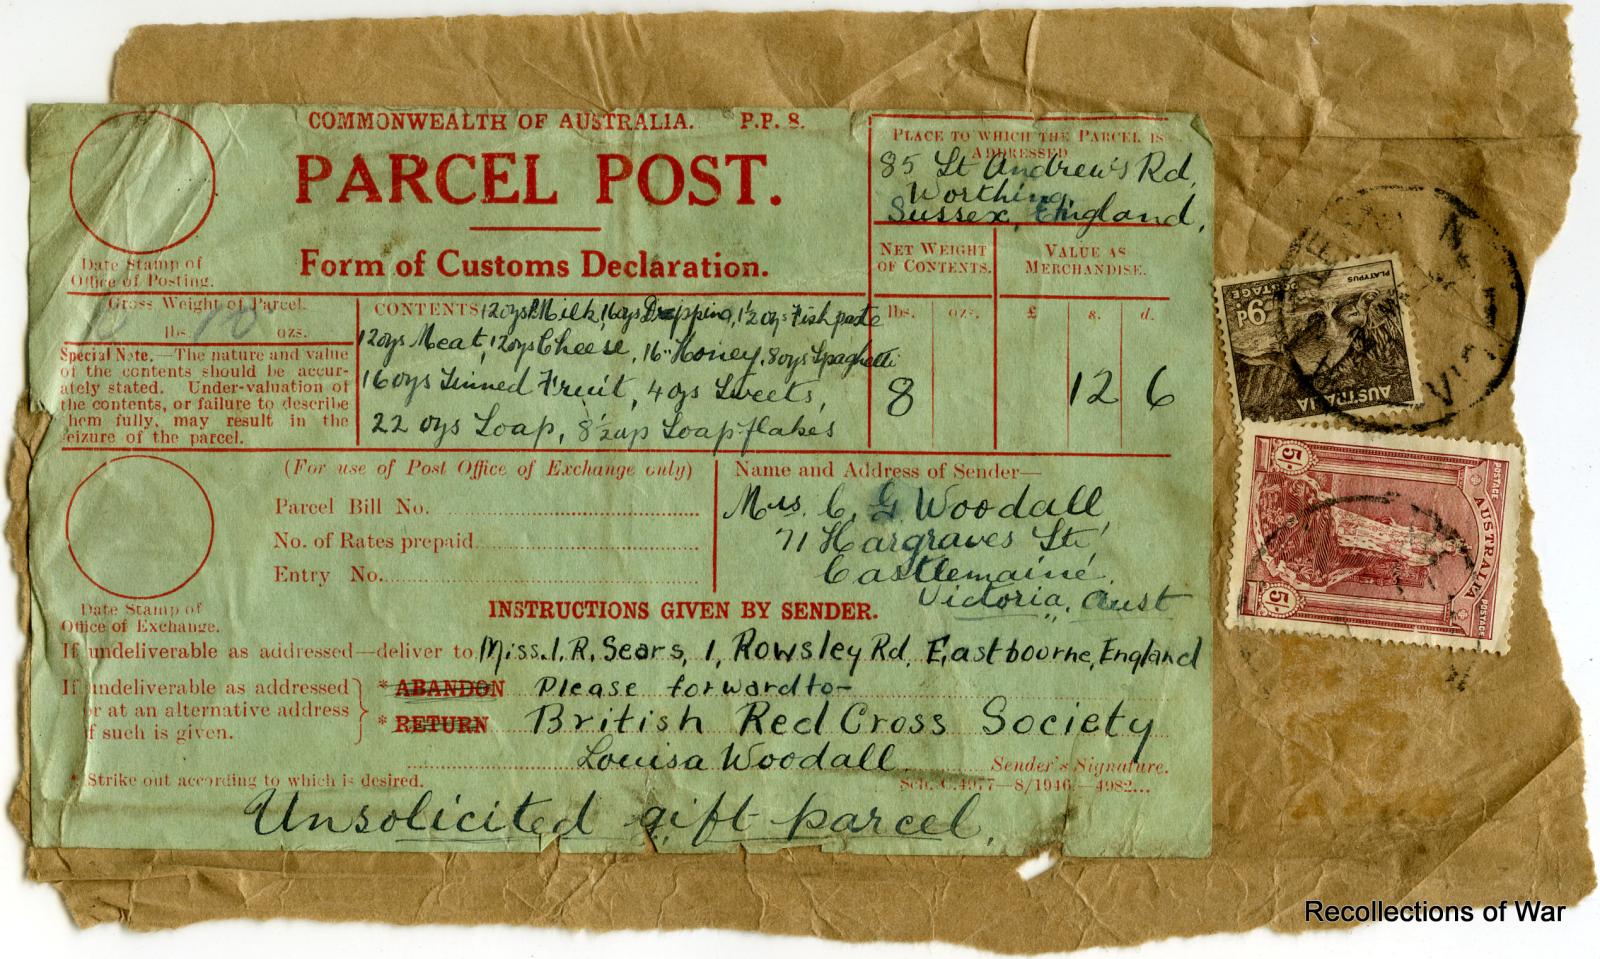 COMMONWEALTH OF AUSTRALIA. P.P. 8.
PARCEL POST.
Form of Customs Declaration.
Date Stamp of
Office of Posting.
PLACE TO WHICH THE PARCEL IS
ADDRESSED
85 St Andrew's Rd,
Worthing,
Sussex, England,
NET WEIGHT
OF CONTENTS.
VALUE AS
MERCHANDISE.
lbs. ozs. £ s. d.
8 12 6
Gross Weight of Parcel.
lbs. 10 ozs.
Special Note.—The nature and value
of the contents should be accur-
ately stated. Under-valuation of
the contents, or failure to describe
hem fully, may result in the
eizure of the parcel.
CONTENTS 12ozs Milk, 16ozs Dripping, 1½ozs Fishpaste
12ozs Meat, 12ozs Cheese, 16" Honey, 8ozs Spaghetti
16ozs Tinned Fruit, 4ozs Sweets,
22 ozs Soap, 8½ozs Soapflakes
(For use of Post Office of Exchange only)
Parcel Bill No.
No. of Rates prepaid
Entry No.
Date Stamp of
Office of Exchange.
Name and Address of Sender—
Mrs. C. G. Woodall
71 Hargraves St,
Castlemaine,
Victoria, Aust
INSTRUCTIONS GIVEN BY SENDER.
If undeliverable as addressed—deliver to Miss. I. R. Sears, 1, Rowsley Rd, Eastbourne, England
If undeliverable as addressed
or at an alternative address
if such is given.
* ABANDON Please forward to-
* RETURN British Red Cross Society
Louisa Woodall
Sender's Signature.
* Strike out according to which is desired.
Sch. C.4977—8/1946.—4982...
Unsolicited gift parcel.
PLATYPUS
POSTAGE
9D
AUSTRALIA
VIC
5/-
POSTAGE
AUSTRALIA
POSTAGE
5/-
Recollections of War